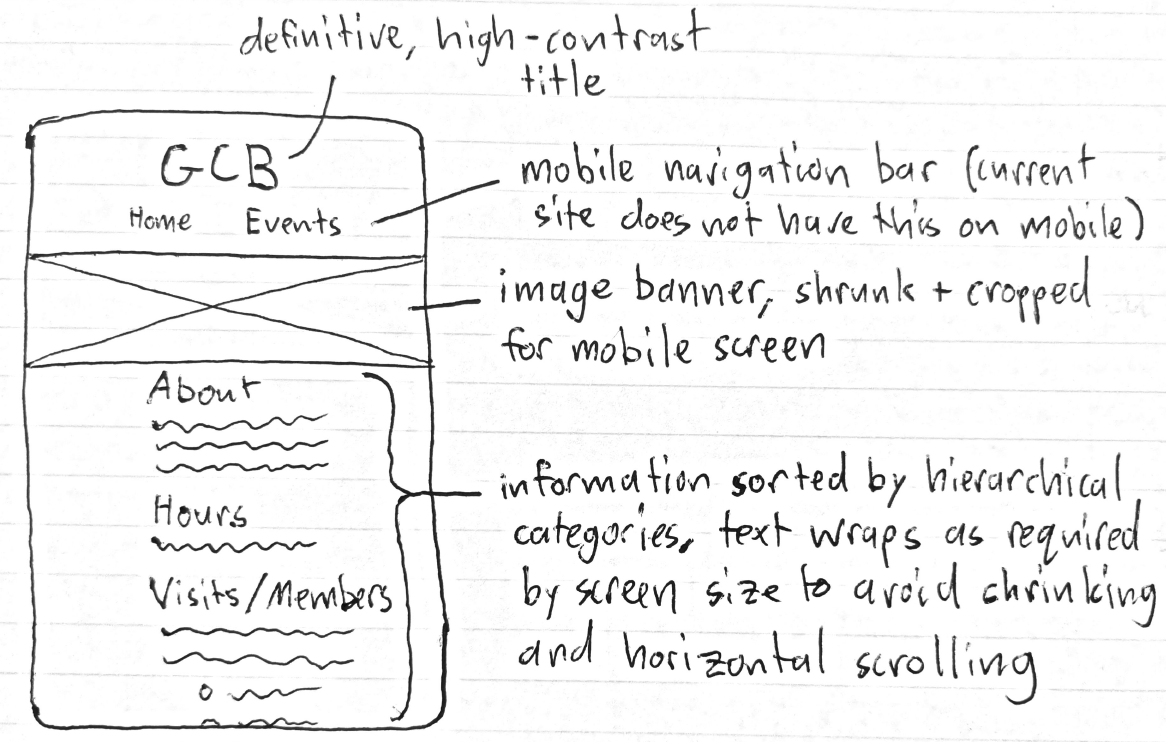 definitive, high-contrast
title
GCB
Home Events
mobile navigation bar (current
site does not have this on mobile)
image banner, shrunk + cropped
for mobile screen
About
Hours
Visits/Members
information sorted by hierarchical
categories, text wraps as required
by screen size to avoid shrinking
and horizontal scrolling